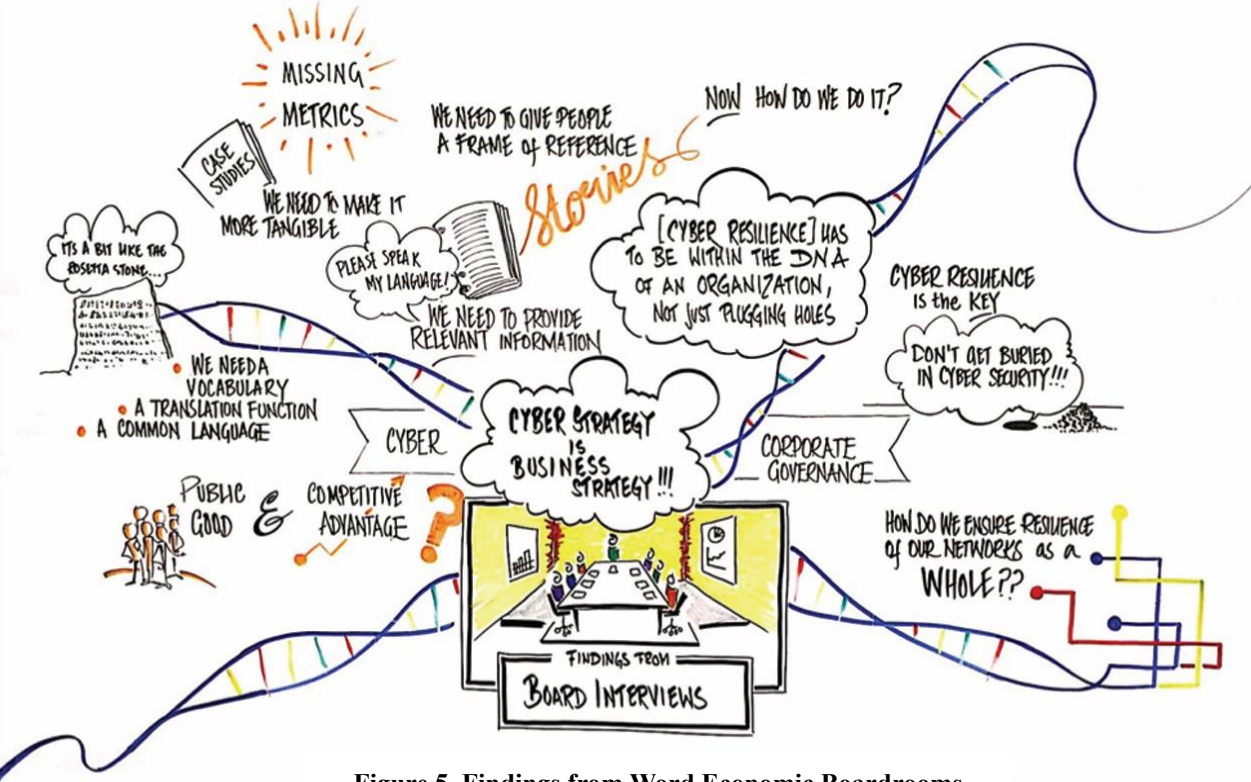 MISSING
METRICS
CASE
STUDIES
WE NEED TO MAKE IT
MORE TANGIBLE
WE NEED TO GIVE PEOPLE
A FRAME of REFERENCE
Stories
NOW HOW DO WE DO IT?
ITS A BIT LIKE THE
ROSETTA STONE...
PLEASE SPEAK
MY LANGUAGE!
WE NEED TO PROVIDE
RELEVANT INFORMATION
[CYBER RESILIENCE] HAS
TO BE WITHIN THE DNA
OF AN ORGANIZATION,
NOT JUST PLUGGING HOLES
CYBER RESILIENCE
IS the KEY
DON'T GET BURIED
IN CYBER SECURITY!!!
• WE NEED A
VOCABULARY
• A TRANSLATION FUNCTION
• A COMMON LANGUAGE
CYBER
CYBER STRATEGY
IS
BUSINESS
STRATEGY!!!
CORPORATE
GOVERNANCE
PUBLIC
GOOD
&
COMPETITIVE
ADVANTAGE
?
HOW DO WE ENSURE RESILIENCE
of OUR NETWORKS as a
WHOLE??
FINDINGS FROM
BOARD INTERVIEWS
Figure 5. Findings from Word Economic Boardrooms